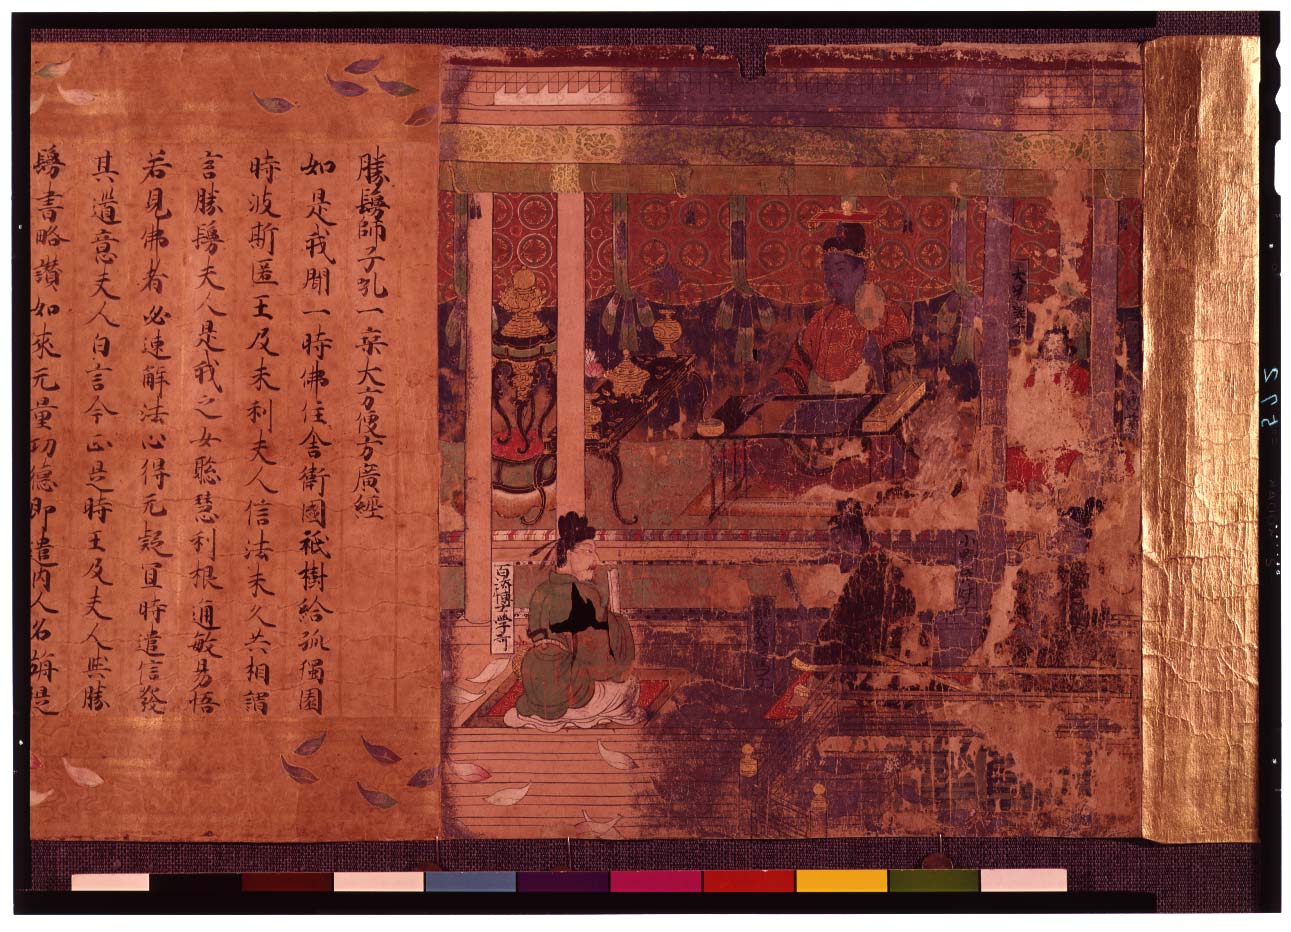 勝鬘師子乳一乗大方便方廣經
如是我聞一時佛住舎衛國祇樹給孤獨園
時波斯匿王及末利夫人信法未久共相謂
言勝鬘夫人是我之女聡慧利根通敏易悟
若見佛者必速解法心得无疑宜時遣信發
其道意夫人白言今正是時王及夫人與勝
鬘書略讃如來无量功徳即遣内人名旃是
百済博士学哥